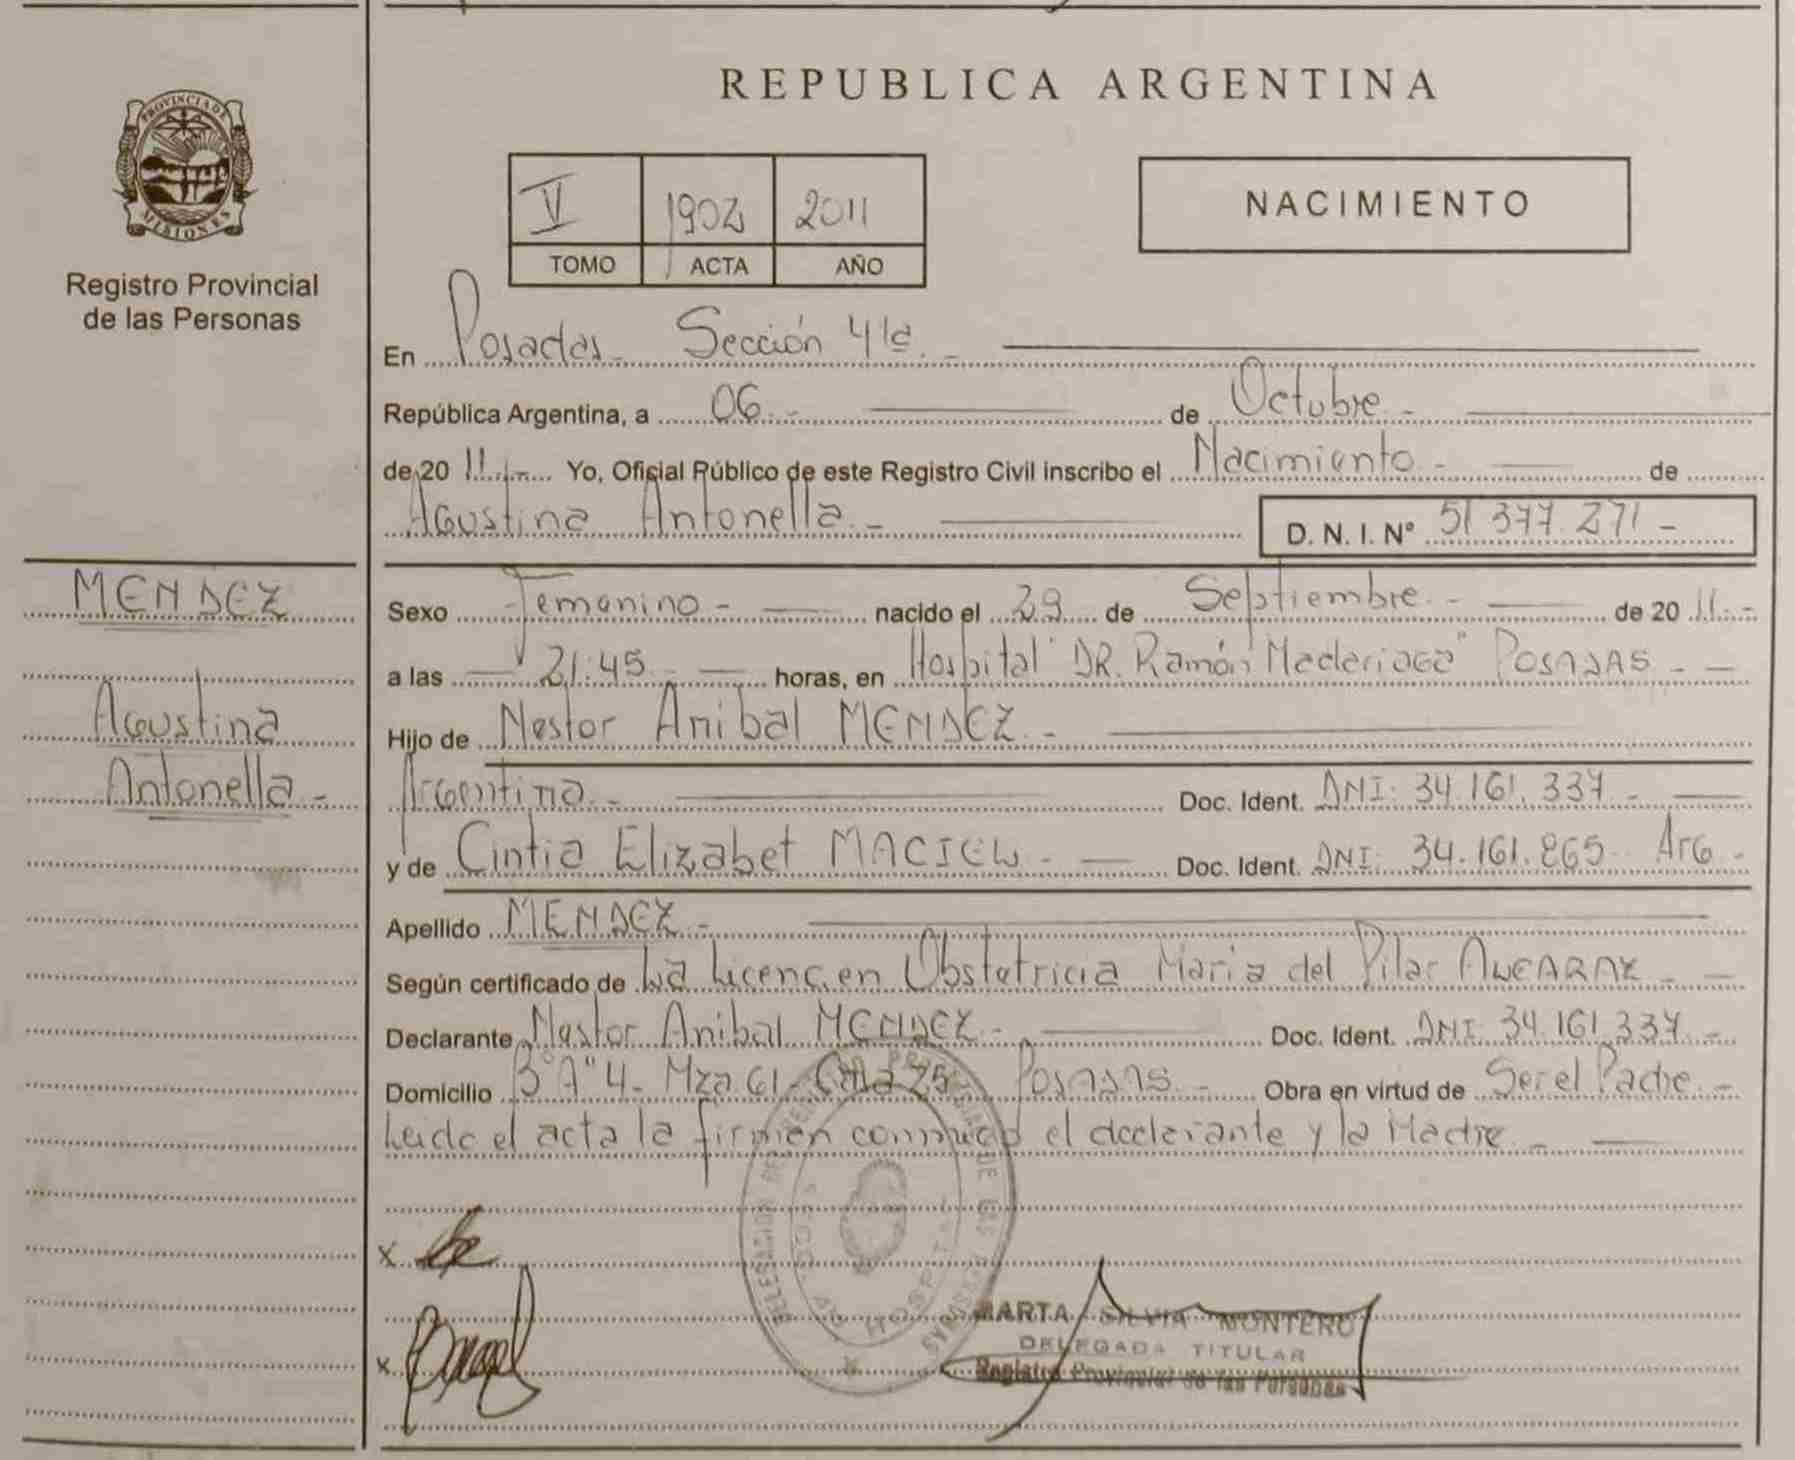 PROVINCIA DE
MISIONES
Registro Provincial
de las Personas
MENDEZ
Agustina
Antonella -
REPUBLICA ARGENTINA
V 1902 2011
TOMO ACTA AÑO
NACIMIENTO
En Posadas - Sección 4ta -
República Argentina, a 06 - de Octubre -
de 20 11.- Yo, Oficial Público de este Registro Civil inscribo el Nacimiento - de
Agustina Antonella - D. N. I. Nº 51 377 271 -
Sexo Femenino - nacido el 29 de Septiembre - de 20 11.-
a las 21:45 - horas, en Hospital "DR. Ramón Madariaga" POSADAS -
Hijo de Nestor Anibal MENDEZ -
Argentino - Doc. Ident. DNI: 34.161.337 -
y de Cintia Elizabet MACIEL - Doc. Ident. DNI: 34.161.865 Arg -
Apellido MENDEZ -
Según certificado de La Licenc. en Obstetricia Maria del Pilar ALCARAZ -
Declarante Nestor Anibal MENDEZ - Doc. Ident. DNI 34.161.337 -
Domicilio Bº "A" 4 - Mza 61 - Casa 25 POSADAS - Obra en virtud de Ser el Padre -
Leida el acta la firman conmigo el declarante y la Madre -
DELEGACION DEL REGISTRO PROVINCIAL DE LAS PERSONAS
HOSPITAL
x
x
MARTA SILVIA MONTERO
DELEGADA TITULAR
Registro Provincial de las Personas